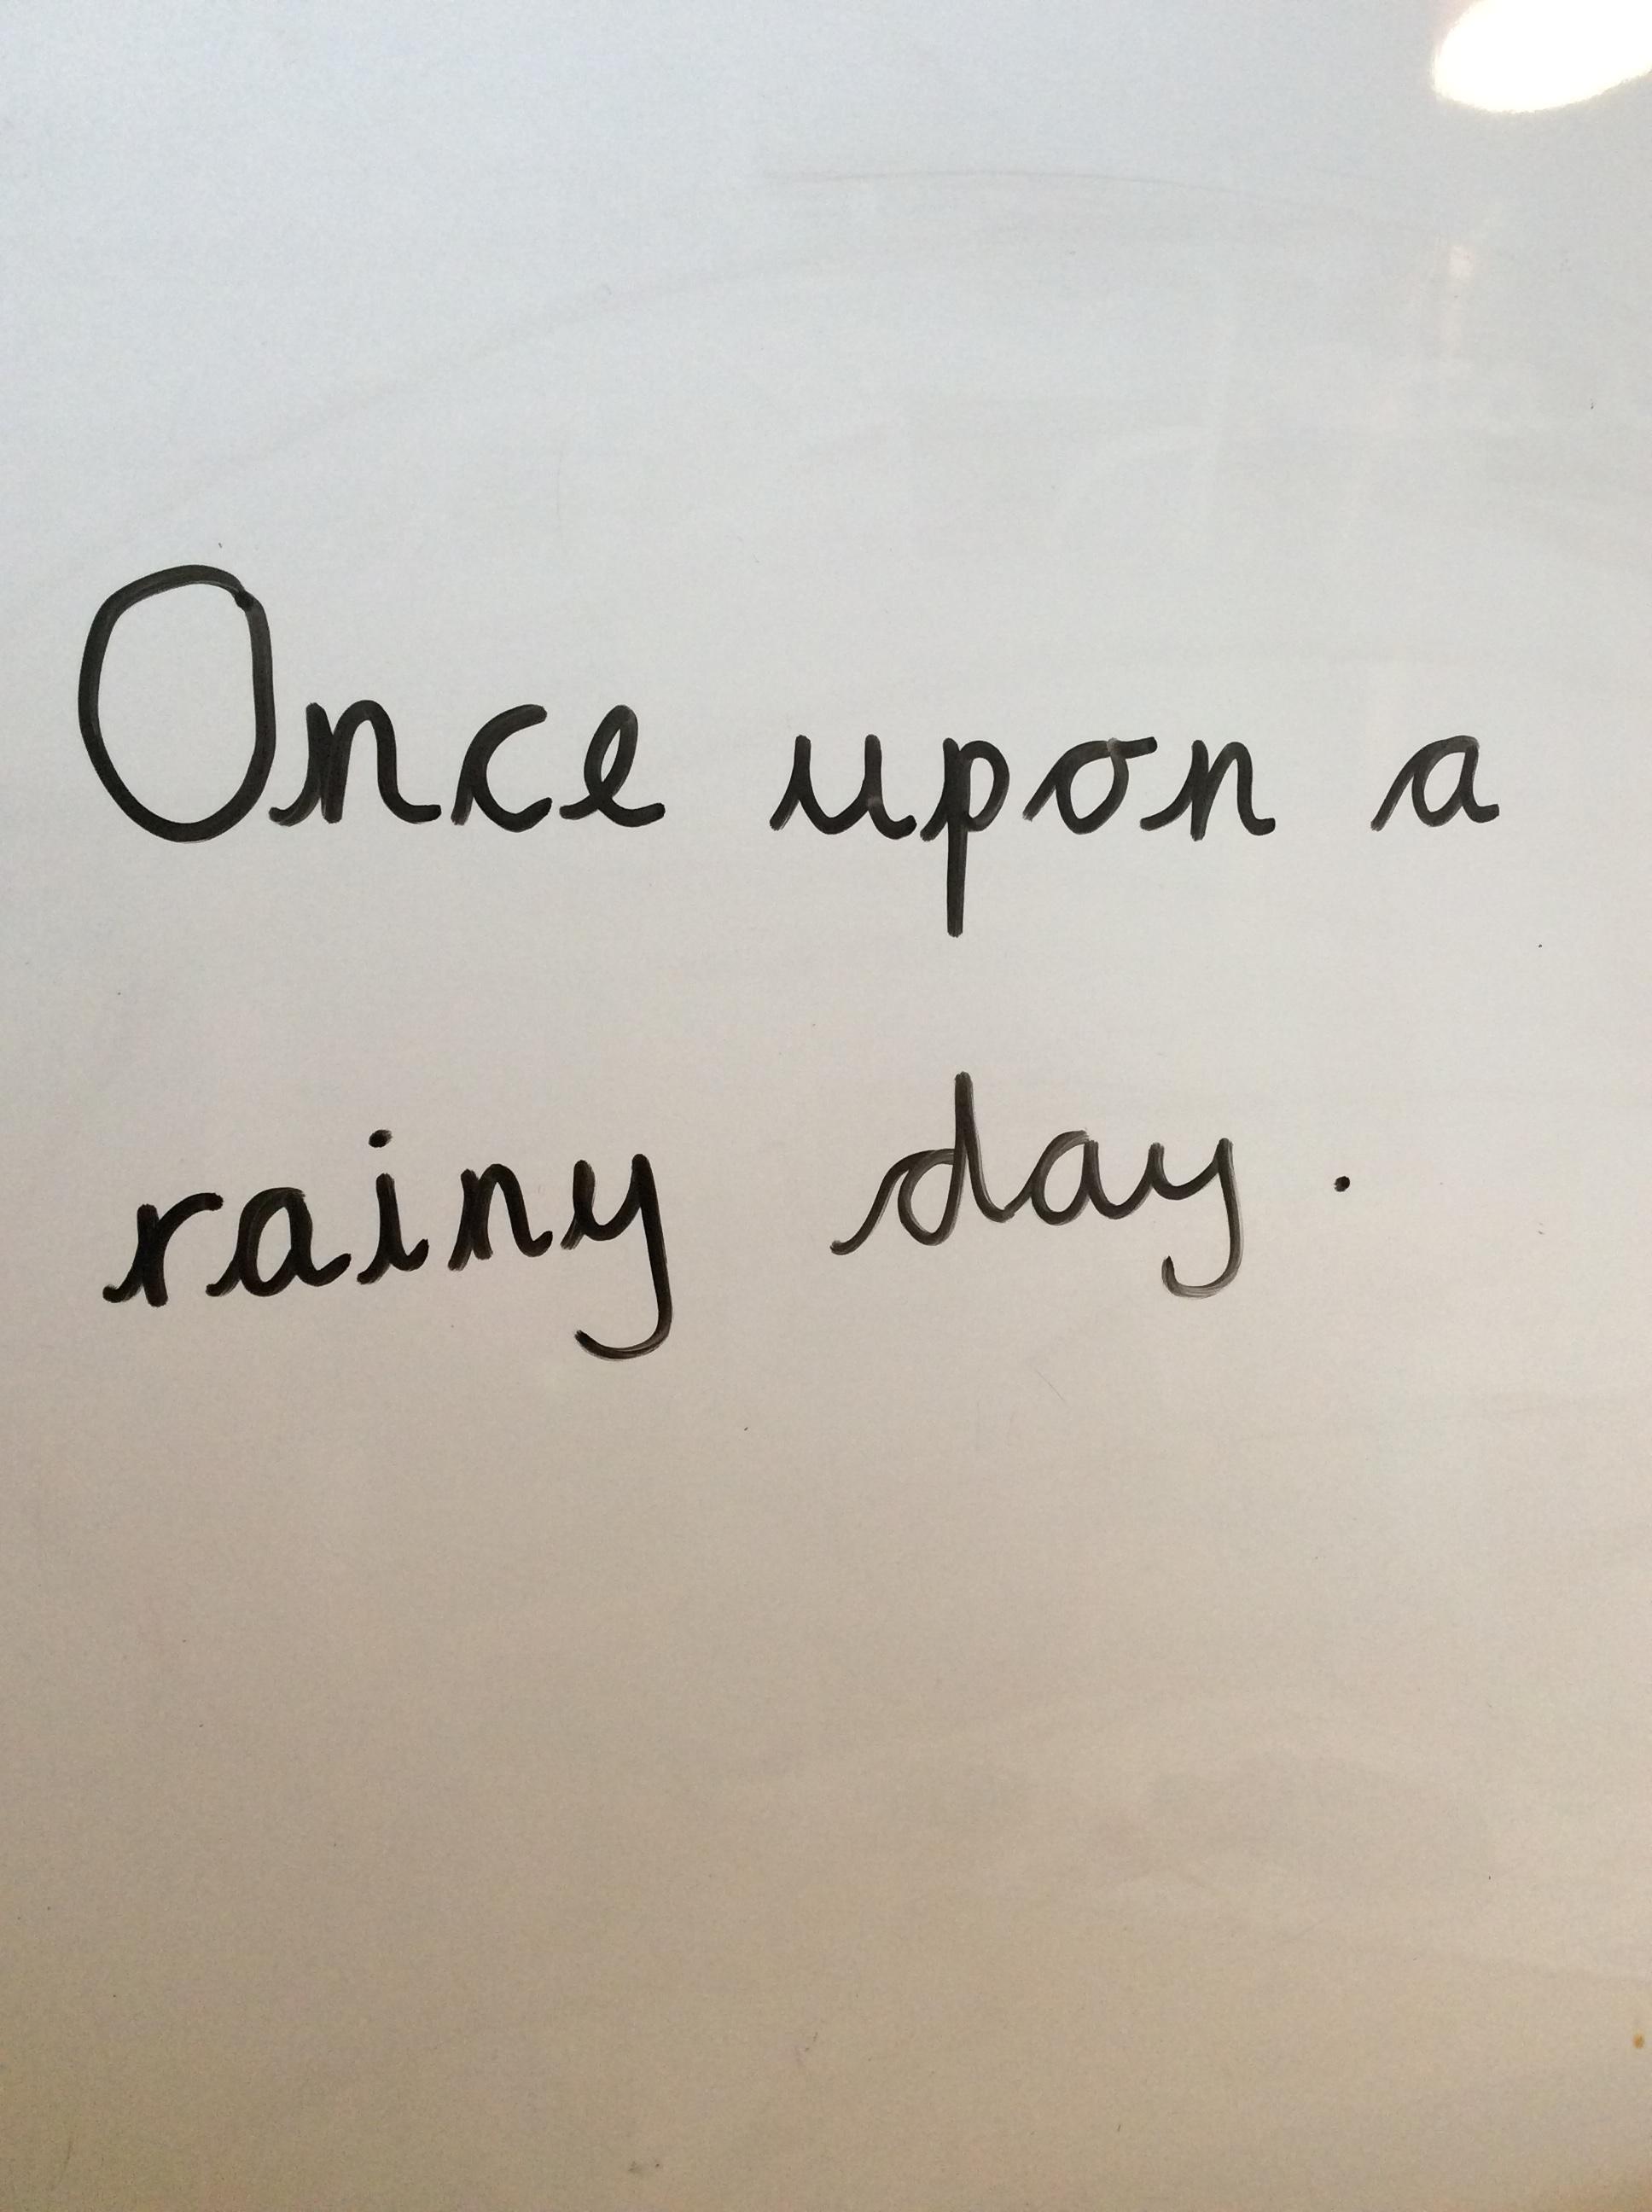 Once upon a
rainy day.